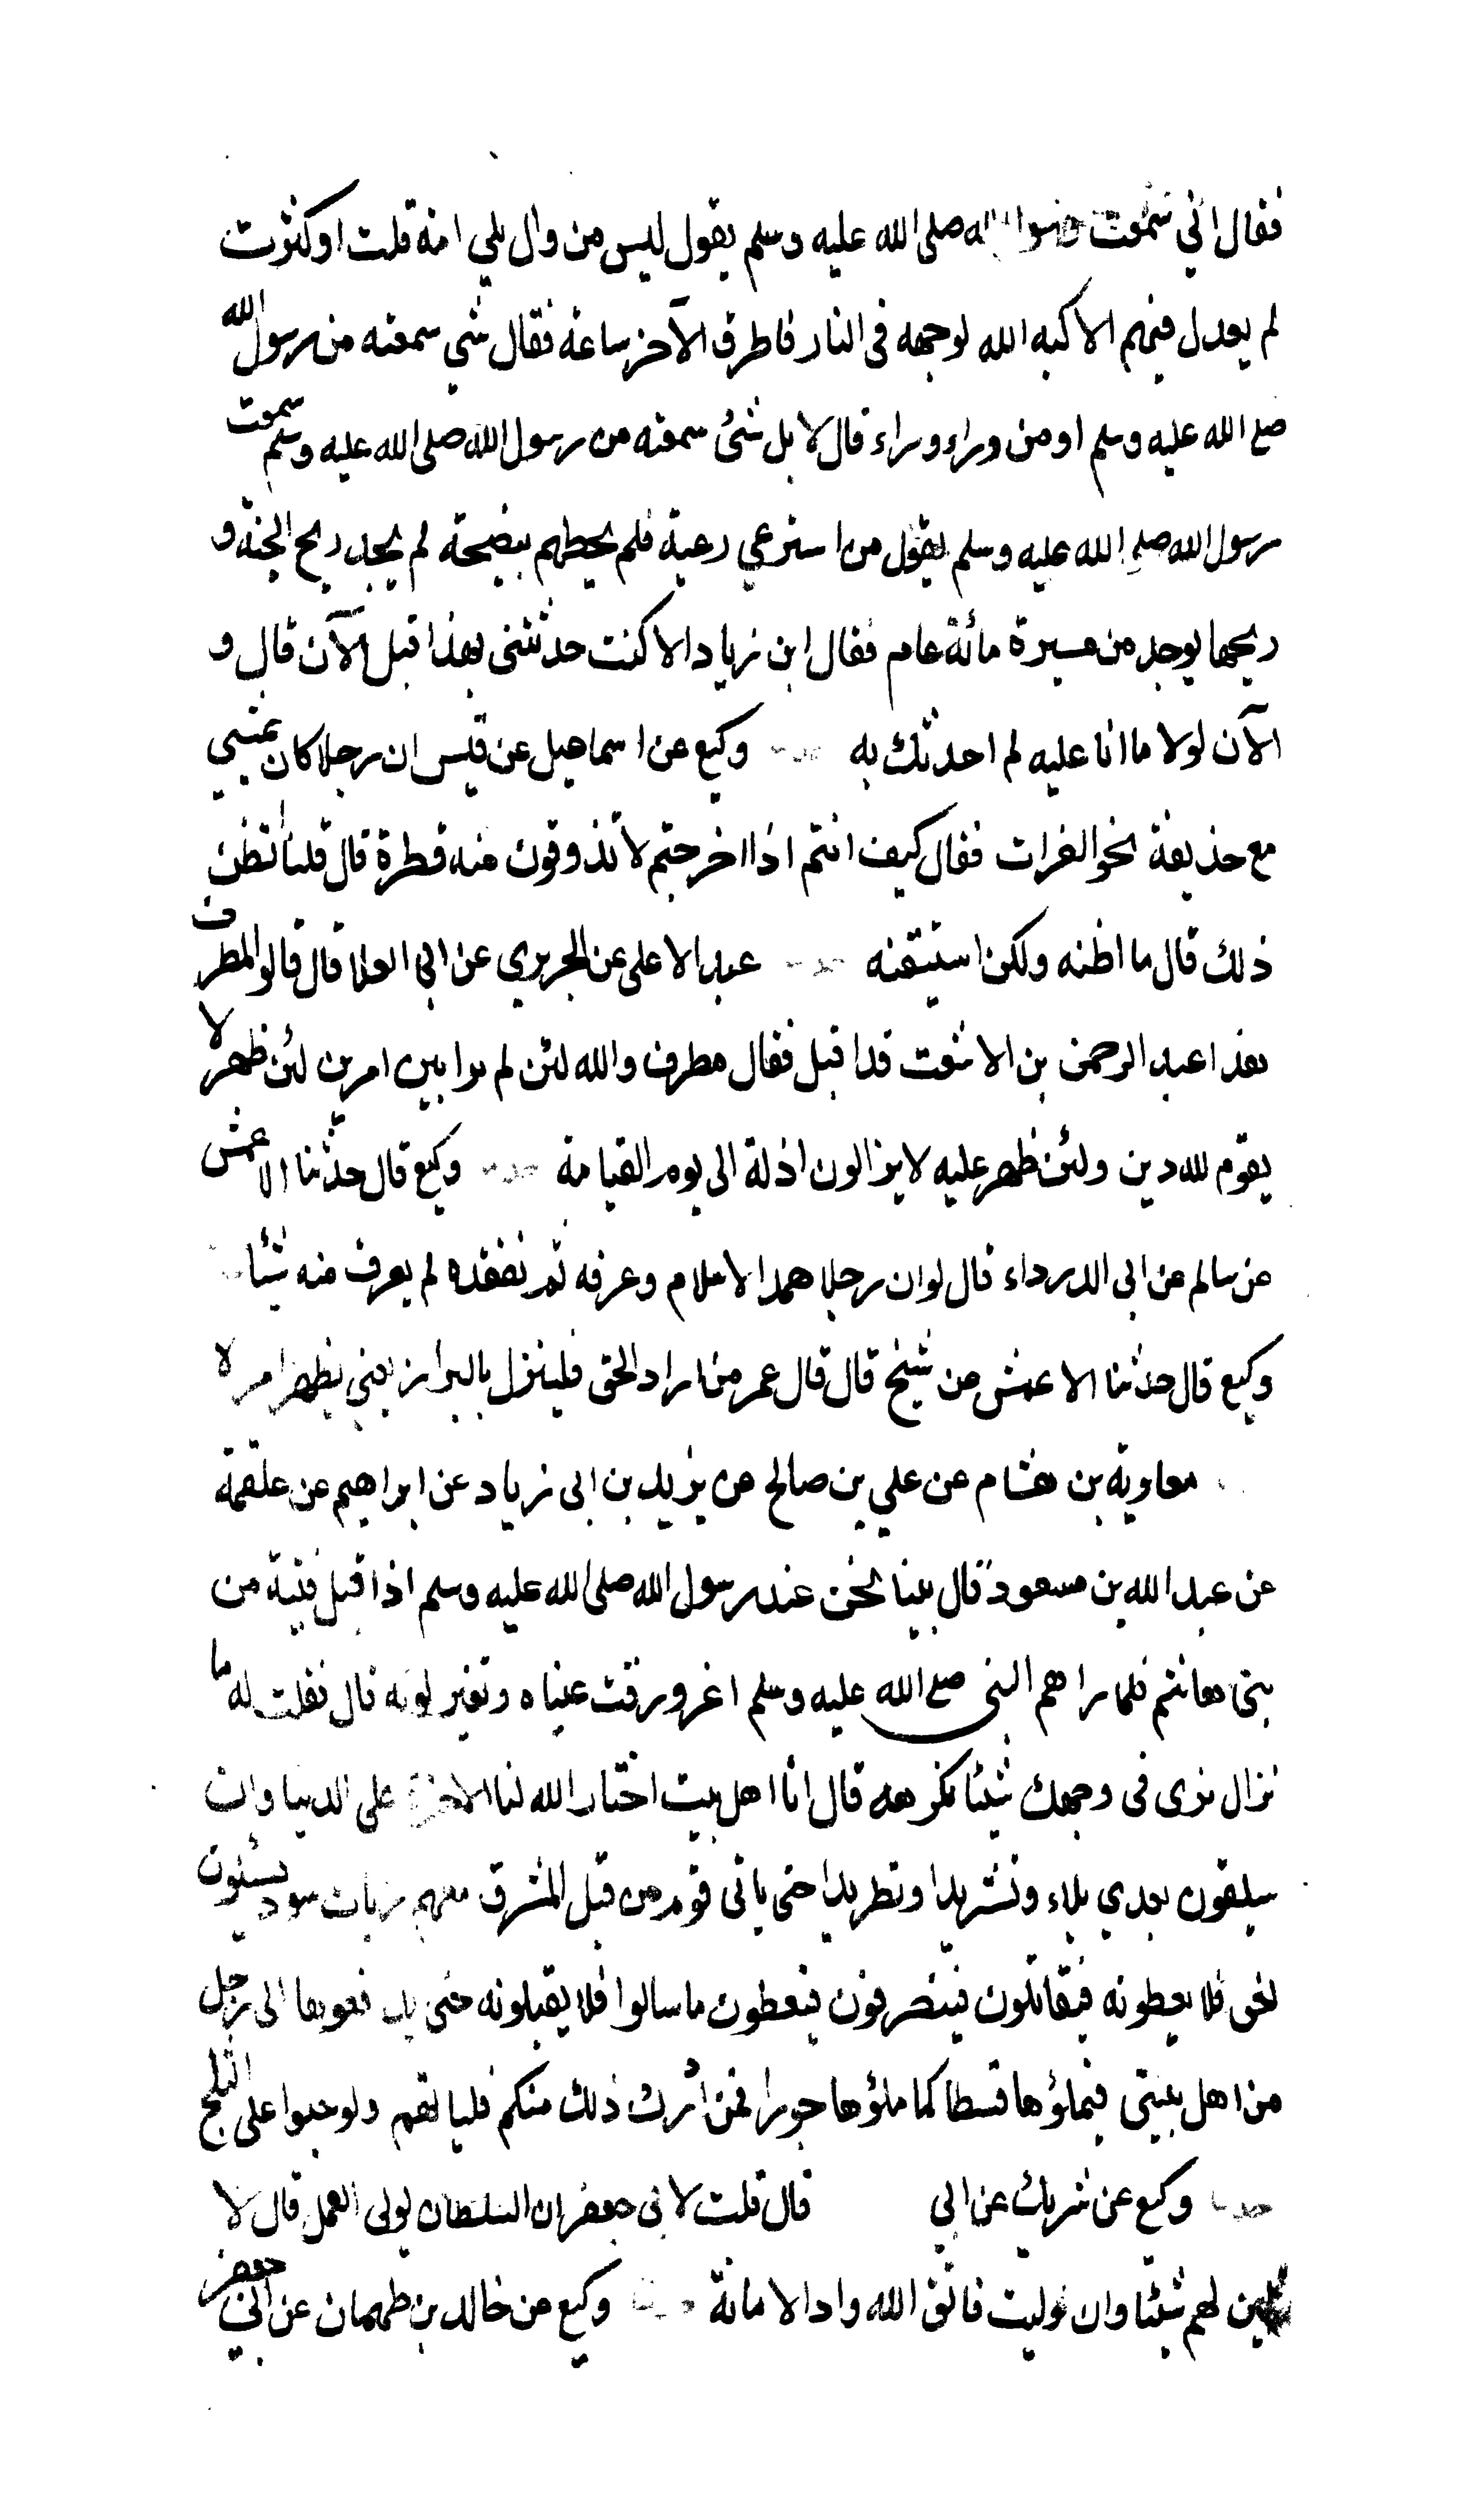 فقال اني سمعت رسول الله صلى الله عليه وسلم يقول ليس من وال يلي امة قلت او كثرت
لم يعدل فيهم الا كبه الله لوجهه فى النار فاطرق الآخر ساعة فقال شي سمعته من رسول الله
صلع الله عليه وسلم او من وراء وراء قال لا بل شئ سمعته من رسول الله صلى الله عليه وسلم سمعت
رسول الله صلع الله عليه وسلم يقول من استرعي رعية فلم يحطهم بنصيحة لم يجد ريح الجنة و
ريحها يوجد من مسيرة مائة عام فقال ابن زياد الا كنت حدثتنى بهذا قبل الآن قال و
الآن لولا ما انا عليه لم احدثك به حدثنا وكيع عن اسماعيل عن قيس ان رجلا كان يمشي
مع حذيفة نحو الفرات فقال كيف انتم اذا اخرجتم لا تذوقون منه قطرة قال قلنا اتظن
ذلك قال ما اظنه ولكن استيقنه حدثنا عبد الاعلى عن الجريري عن ابى العلا قال قالوا لمطرف
هذا عبد الرحمن بن الاشعت قد اقبل فقال مطرف والله لئن لم بين امرين لئن ظهر لا
يقوم لله دين ولئن ظهر عليه لا يزالون اذلة الى يوم القيامة حدثنا وكيع قال حدثنا الاعمش
عن سالم عن ابى الدرداء قال لو ان رجلا همه الاسلام وعرفه ثم تفقده لم يعرف منه شيئا
وكيع قال حدثنا الاعمش عن شيخ قال قال عمر من اراد الحق فلينزل بالبراز يعني يظهر امره
معاوية بن هشام عن علي بن صالح عن يزيد بن ابى زياد عن ابراهيم عن علقمة
عن عبد الله بن مسعود قال بينا نحن عند رسول الله صلى الله عليه وسلم اذا قبل فتية من
بنى هاشم فلما راهم النبى صلع الله عليه وسلم اغرورقت عيناه وتغير لونه قال فقلت له ما
نزال نرى فى وجهك شيئا نكرهه قال انا اهل بيت اختار الله لنا الاخرة على الدنيا وان
سيلقون بعدي بلاء وتشريدا وتطريدا حتى ياتى قوم من قبل المشرق معهم رايات سود يسئلون
الحق فلا يعطونه فيقاتلون فينصرفون فيعطون ما سالوا فلا يقبلونه حتى يدفعوها الى رجل
من اهل بيتى فيملؤها قسطا كما ملؤها جورا فمن ادرك ذلك منكم فلياتهم ولو حبوا على الثلج
حدثنا وكيع عن شريك عن ابي قال قلت لابى جعفر ان السلطان يولى العمل قال لا
لهم شيئا وان وليت فاتق الله واد الامانة حدثنا وكيع عن خالد بن طهمان عن ابي جعفر